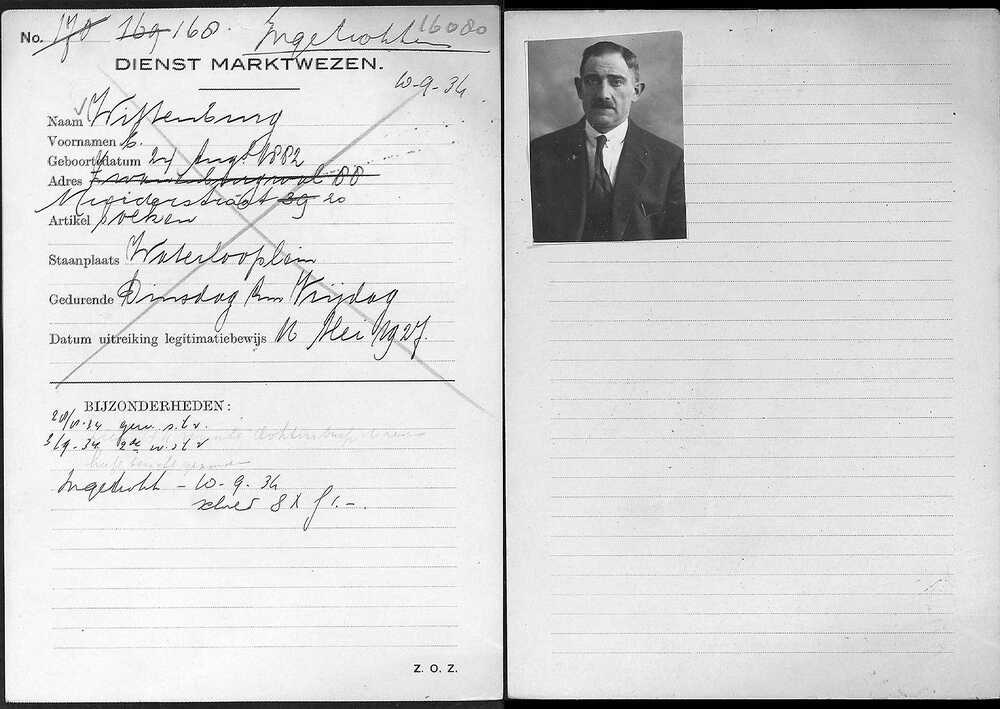 No. 170 169 168. Ingetrokken 16080
DIENST MARKTWEZEN.
10-9-34.
Naam Wittenburg
Voornamen
Geboortedatum 27 Augs 1882
Adres Zwanenburgwal 88
39 20
Artikel
Staanplaats Waterlooplein
Gedurende Dinsdag t/m Vrijdag
Datum uitreiking legitimatiebewijs 16 Mei 1927.
BIJZONDERHEDEN:
28/8-34 gew. s.l.v.
3/9-34 2de w.s.l.v
Ingetrokk - 10-9-34
schuld 8 x f 1.-.
Z. O. Z.